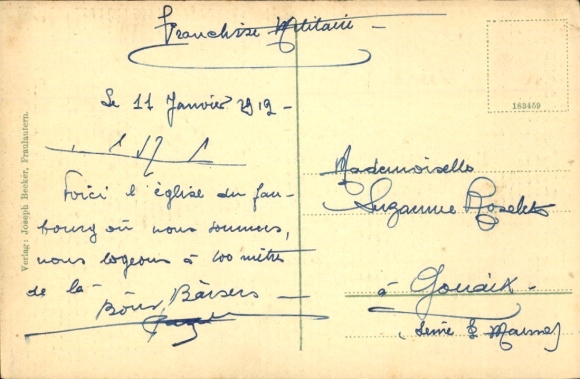 Franchise Militaire -
Le 11 Janvier 1919 -
Voici l'église du fau-
bourg où nous sommes,
nous logeons à 100 mètres
de là -
Bons Baisers
Mademoiselle
Suzanne Roselet
à Gouaix -
(Seine & Marne)
183459
Verlag: Joseph Becker, Fraulautern.